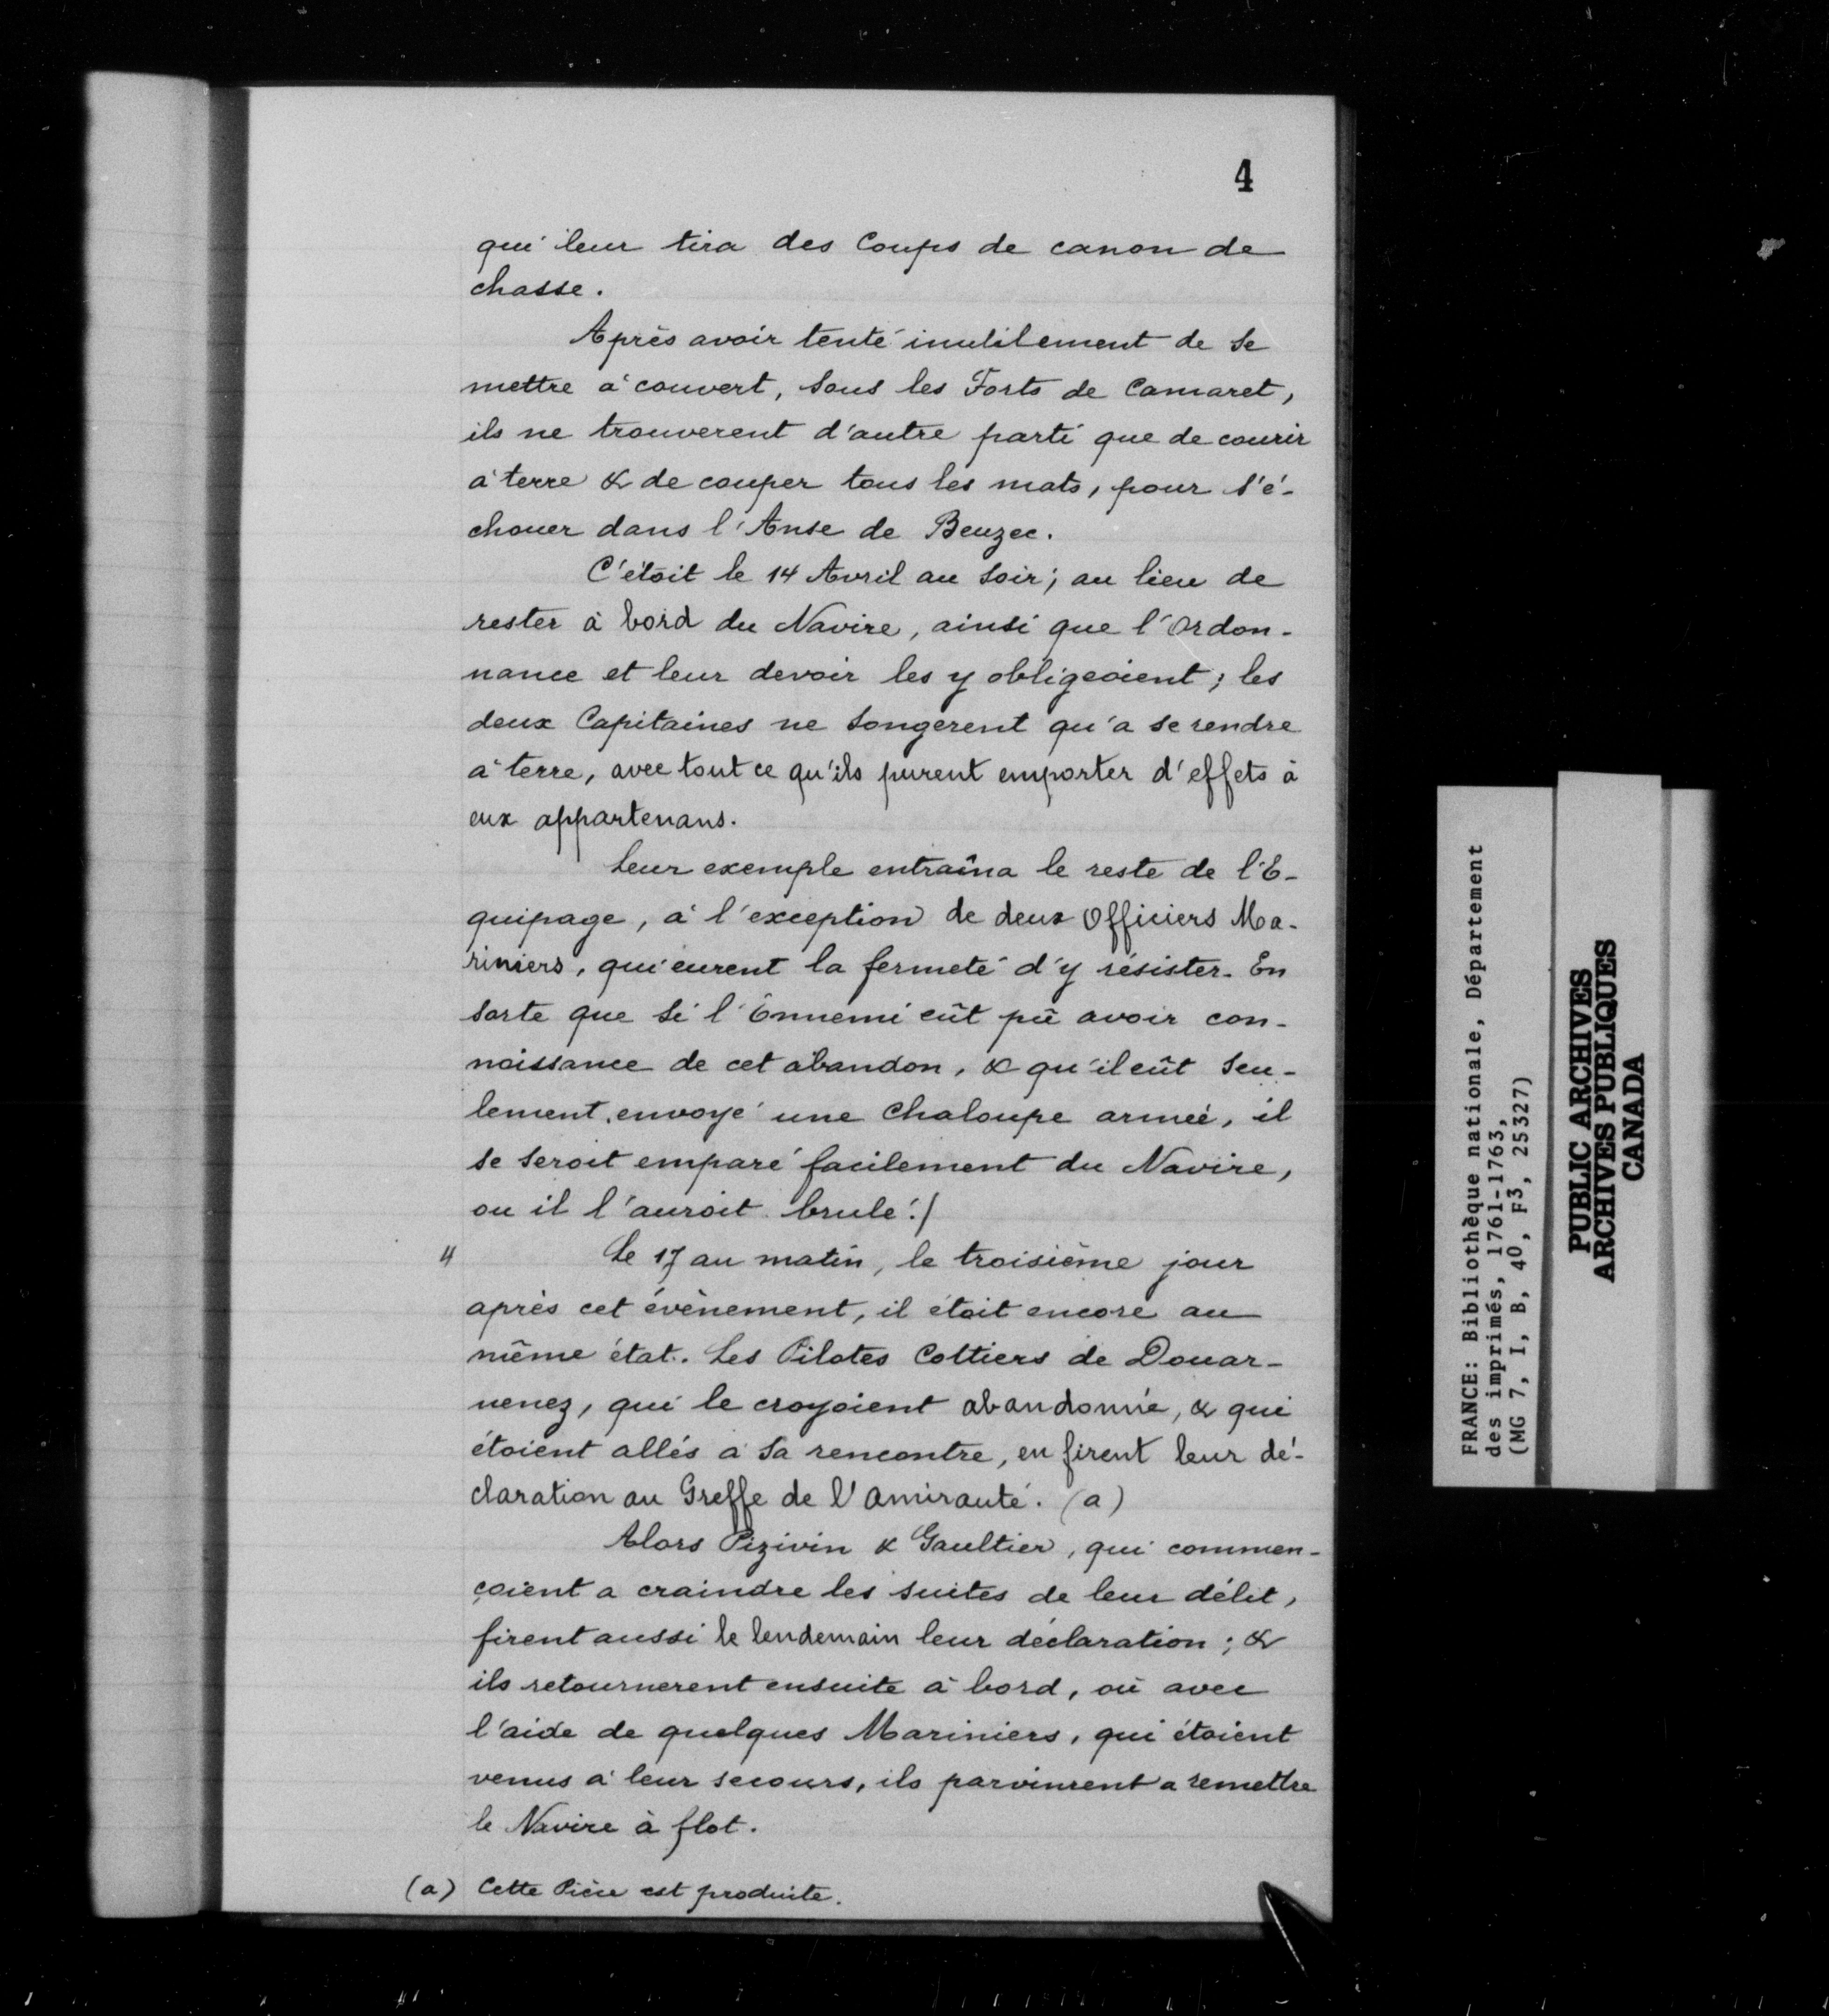 4
qui leur tira des Coups de canon de
chasse.
Après avoir tenté inutilement de se
mettre à couvert, sous les Forts de Camaret,
ils ne trouverent d'autre parti que de courir
à terre & de couper tous les mats, pour s'é-
chouer dans l'Anse de Beuzec.
C'étoit le 14 Avril au soir; au lieu de
rester à bord du Navire, ainsi que l'Ordon-
nance et leur devoir les y obligeoient; les
deux Capitaines ne songerent qu'a se rendre
à terre, avec tout ce qu'ils purent emporter d'effets à
eux appartenans.
Leur exemple entraîna le reste de l'E-
quipage, à l'exception de deux Officiers Ma-
riniers, qui eurent la fermeté d'y résister. En
sorte que si l'Ennemi eût pû avoir con-
noissance de cet abandon, & qu'il eût seu-
lement envoyé une Chaloupe armée, il
se seroit emparé facilement du Navire,
ou il l'auroit brulé./
4 Le 17 au matin, le troisième jour
après cet évènement, il étoit encore au
même état. Les Pilotes Cottiers de Douar-
nenez, qui le croyoient abandonné, & qui
étoient allés à sa rencontre, en firent leur dé-
claration au Greffe de l'Amirauté. (a)
Alors Pizivin & Gaultier, qui commen-
çoient a craindre les suites de leur délit,
firent aussi le lendemain leur déclaration; &
ils retournerent ensuite à bord, où avec
l'aide de quelques Mariniers, qui étoient
venus à leur secours, ils parvinrent a remettre
le Navire à flot.
(a) Cette Pièce est produite.
FRANCE: Bibliothèque nationale, Département
des imprimés, 1761-1763,
(MG 7, I, B, 40, F3, 25327)
PUBLIC ARCHIVES
ARCHIVES PUBLIQUES
CANADA